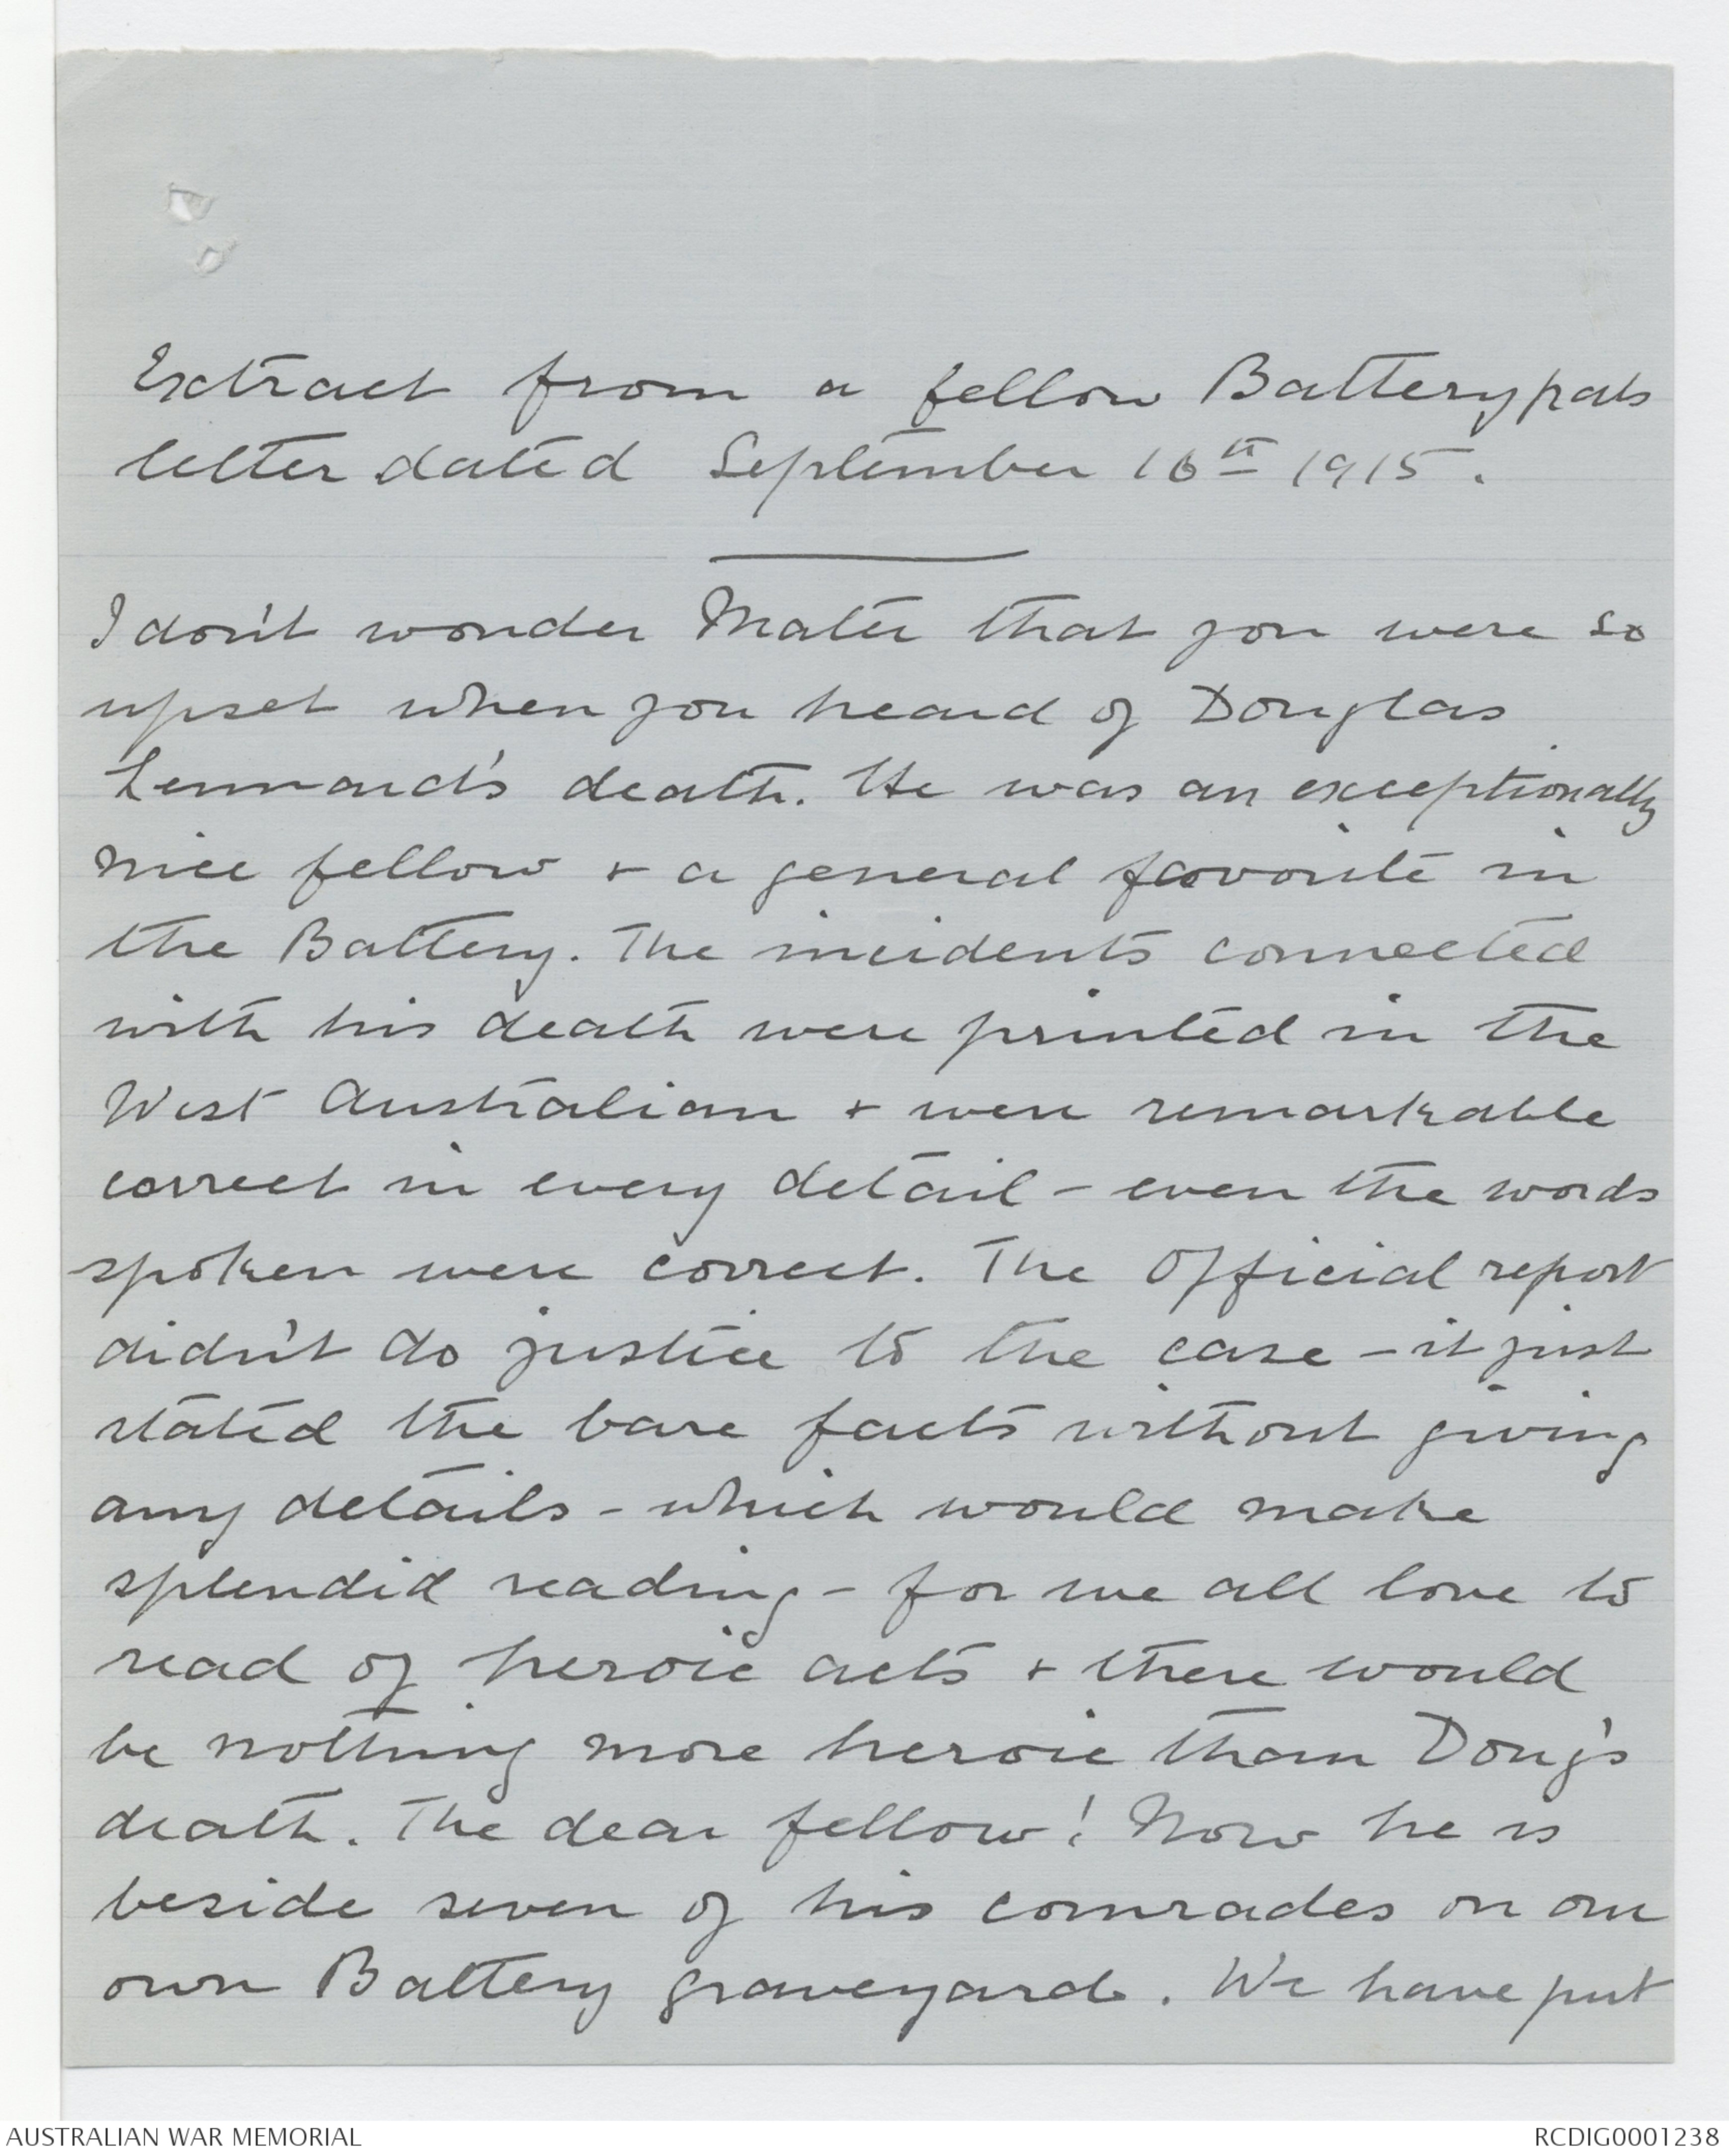 Extract from a fellow Battery pals
letter dated September 16th 1915.
I don't wonder Mater that you were so
upset when you heard of Douglas
Lennard's death. He was an exceptionally
nice fellow + a general favorite in
the Battery. The incidents connected
with his death were printed in the
West Australian + were remarkable
correct in every detail - even the words
spoken were correct. The Official report
didn't do justice to the case - it just
stated the bare facts without giving
any details - which would make
splendid reading - for we all love to
read of heroic acts + there would
be nothing more heroic than Doug's
death. The dear fellow! Now he is
beside seven of his comrades on our
own Battery graveyard. We have put
AUSTRALIAN WAR MEMORIAL
RCDIG0001238